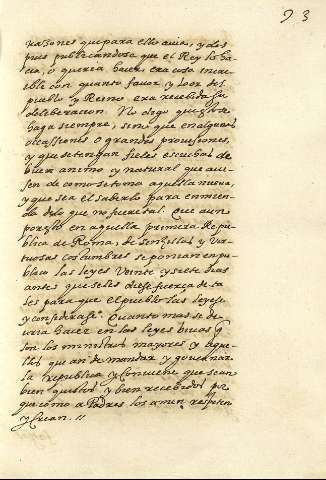 93
razones que para ello avia, y des
pues publicandosa que el Rey lo ha
cia, o queria hacer, era cosa incre
ible con quanto favor y Loor del
pueblo y Reyno era recebida su
deliberacion. No digo que esto se
haga siempre, sino que en algunas
ocassiones o grandes provissiones,
y que se tengan fieles escuchas de
buen animo y natural que avi
sen de como se toma aquella nueva,
y que sea el saberlo para enmien
da de lo que no fuere tal. Que aun
por esto en aquella primera Repu
blica de Roma, de senzillas y Vir
tuosas costumbres se ponian en pu
blico las leyes Veinte y siete dias
antes que se les diesse fuerza de ta
les para que el pueblo las leyese
y considerase. Quanto mas se de
viria hacer en las leyes vivas q
son los ministros mayores y aque
llos que an de mandar y governar
la republica y Conviene que sean
bien quistos y bien recebidos pa
que como a Padres los amen, respeten
y sigan. //